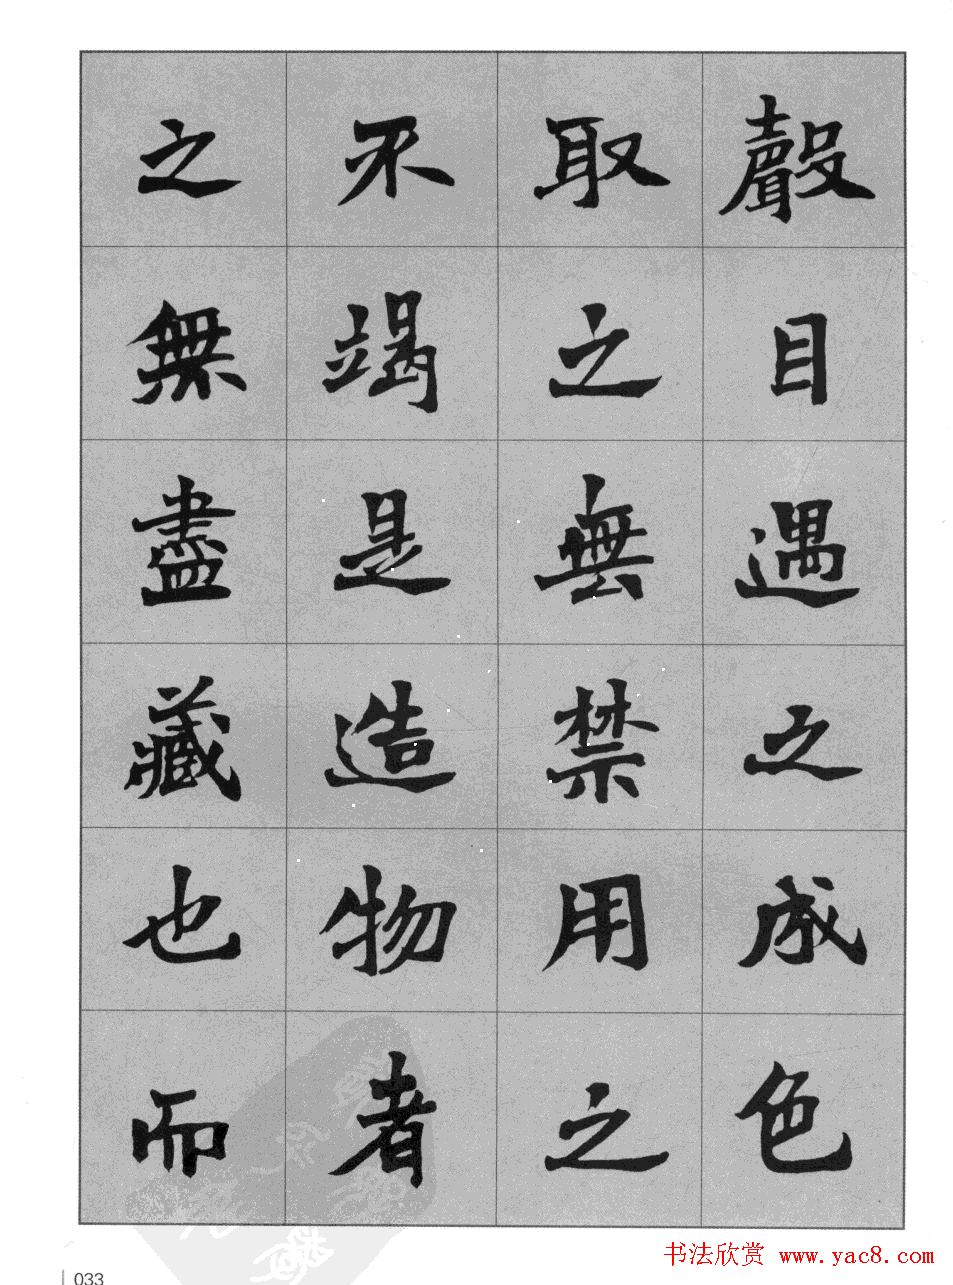 聲目遇之成色
取之無禁用之
不竭是造物者
之無盡藏也而
033
书法欣赏 www.yac8.com